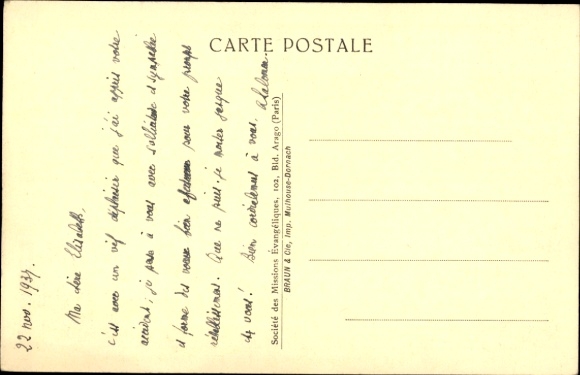 CARTE POSTALE
22 nov. 1937.
Ma chère Elizabeth,
c'est avec un vif déplaisir que j'ai appris votre
accident; je pense à vous avec sollicitude et sympathie
et forme des vœux bien affectueux pour votre prompt
rétablissement. Que ne puis-je monter jusque
chez vous! Bien cordialement à vous.
Société des Missions Evangéliques, 102, Bld. Arago (Paris)
BRAUN & Cie, Imp. Mulhouse-Dornach